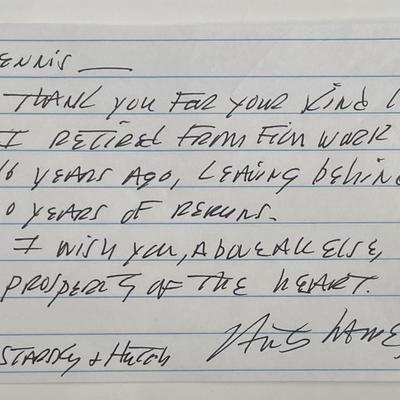 ENNIS —
THANK YOU FOR YOUR KIND L
I RETIRED FROM FILM WORK
16 YEARS AGO, LEAVING BEHIND
0 YEARS OF RERUNS.
I WISH YOU, ABOVE ALL ELSE,
PROSPERITY OF THE HEART.
STARSKY & HUTCH